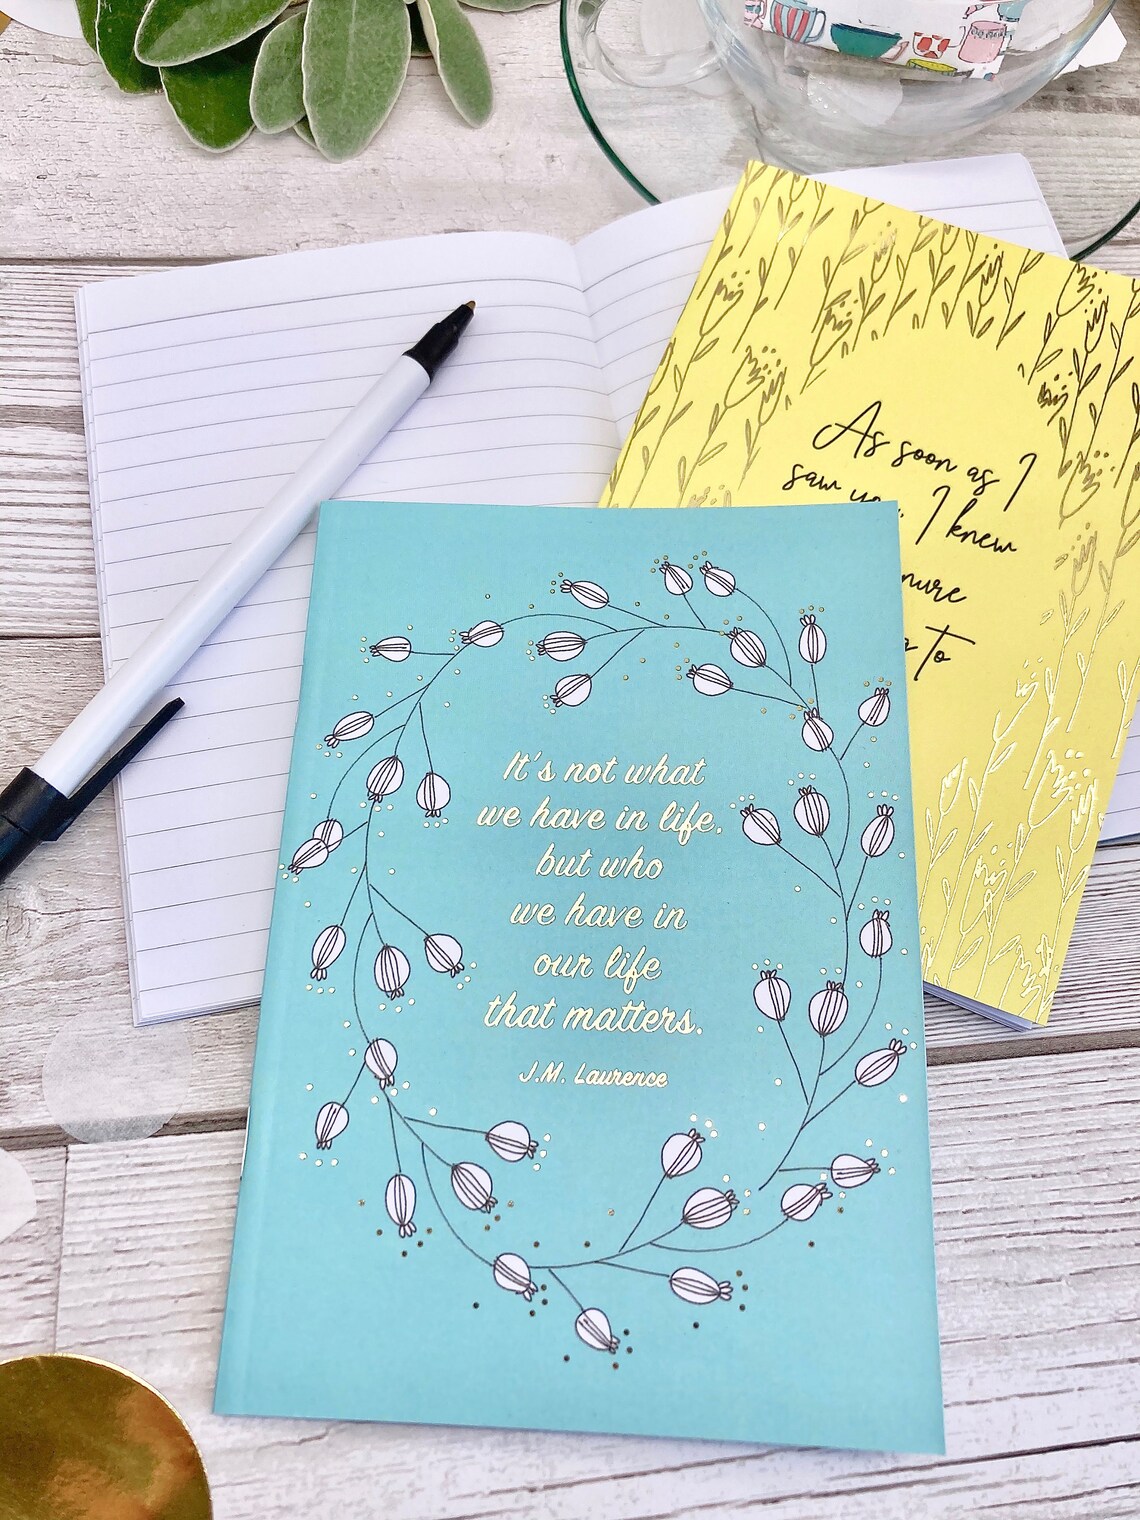 As soon as I
saw I knew
to
It's not what
we have in life,
but who
we have in
our life
that matters.
J.M. Laurence